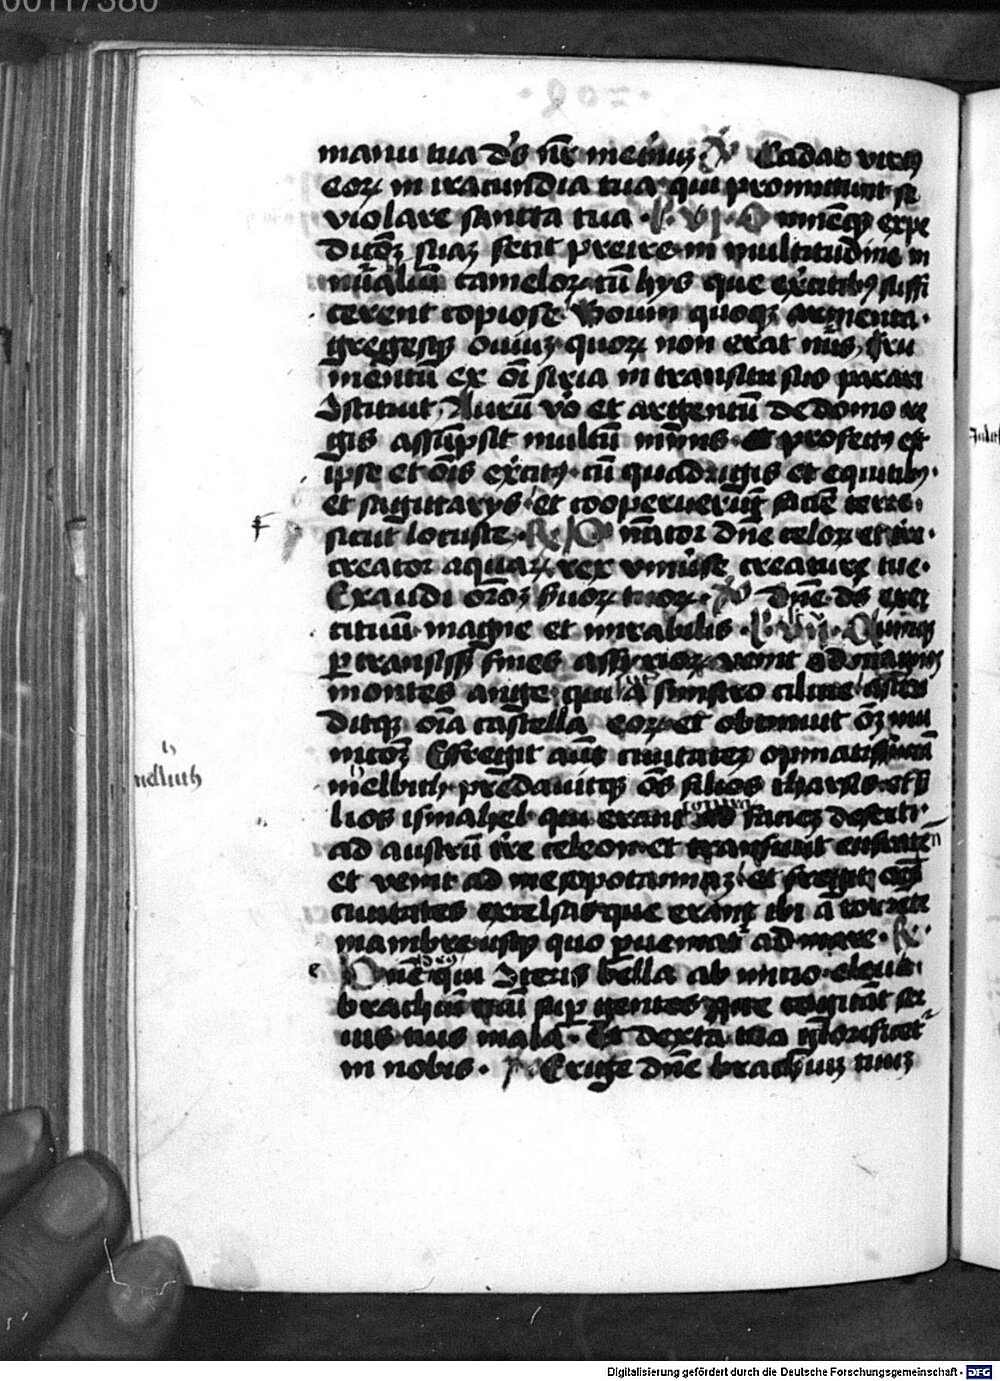 00117380
manu tua ds nr metuuz V Cadat virtꝯ
eoꝝ in iracundia tua qui promittunt se
violare sancta tua · L · VJ · Omnemqꝫ expe
dicōꝫ suaꝫ fecit preire in multitudine in
nūabiliū cameloꝝ cū hijs que exercitibꝫ suffi
cerent copiose Bouum quoqꝫ armenta ·
gregesqꝫ ouiuꝫ quoꝝ non erat nūs, fru
mentū ex oī siria in transitu suo parari
Jstituit, Aurū vo et argentū de domo re
gis assūpsit multū nimis et profectꝯ et
ipse et oīs exercitꝯ cū quadrigis et equitibꝫ ·
et sagittarijs et cooperuerūt facie terre ·
sicut locuste · R Dominator dne celoꝝ et tre ·
creator aquaꝝ rex vniuse creature tue ·
Exaudi oroeꝫ suoꝝ tuoꝝ · V dne ds exer
cituum magne et mirabilis · L · VII · Cumqꝫ
ptransisset fines assyrioꝝ venit ad magnos
montes ange qui sūt a sinistro cilicie ascen
ditqꝫ oīa castella eoꝝ et obtinuit oēꝫ mu
nicoeꝫ Effregit aūt ciuitateꝫ opinatissimā
melbith predauitqꝫ oēs filios tharsis et fi
lios ismahel qui erant contra facieꝫ deserti ·
ad austrū tre celeon et transiuit eufraten
et venit ad mesopotamiaꝫ et fregit oēs
ciuitates excelsas que erant ibi a torrete
mambre usqꝫ quo pueniat ad mare · R ·
Dne deꝯ qui Iteris bella ab initio eleua
brachiū tuū sup gentes que cogitāt ser
uis tuis mala · Et dextā tua glorificet
in nobis · V Erige dne brachiuꝫ tuuꝫ
melluth
Digitalisierung gefördert durch die Deutsche Forschungsgemeinschaft · DFG